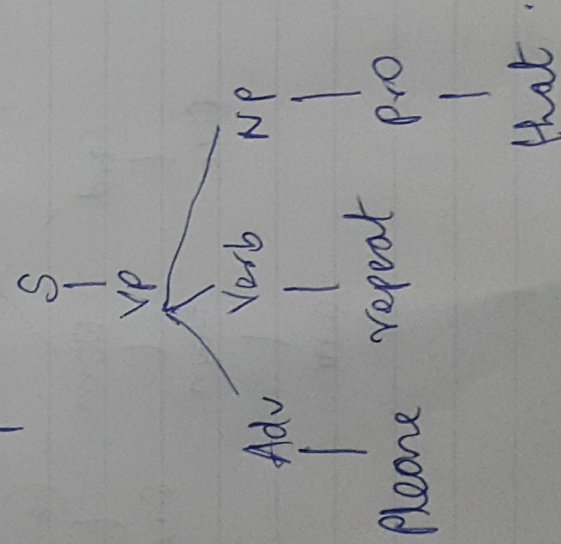 S
VP
Adv Verb NP
Pro
Please repeat that.